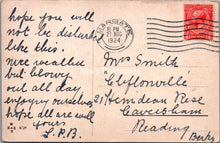 hope you will
not be disturbed
like this.
nice weather
but blowy
out all day
enjoying ourselves
hope all are well
yours
L.P.B.
MARGATE
PM
AUG
1924
Mrs Smith
Cliftonville
21 Hemdean Rise
Caversham
Reading
Berks